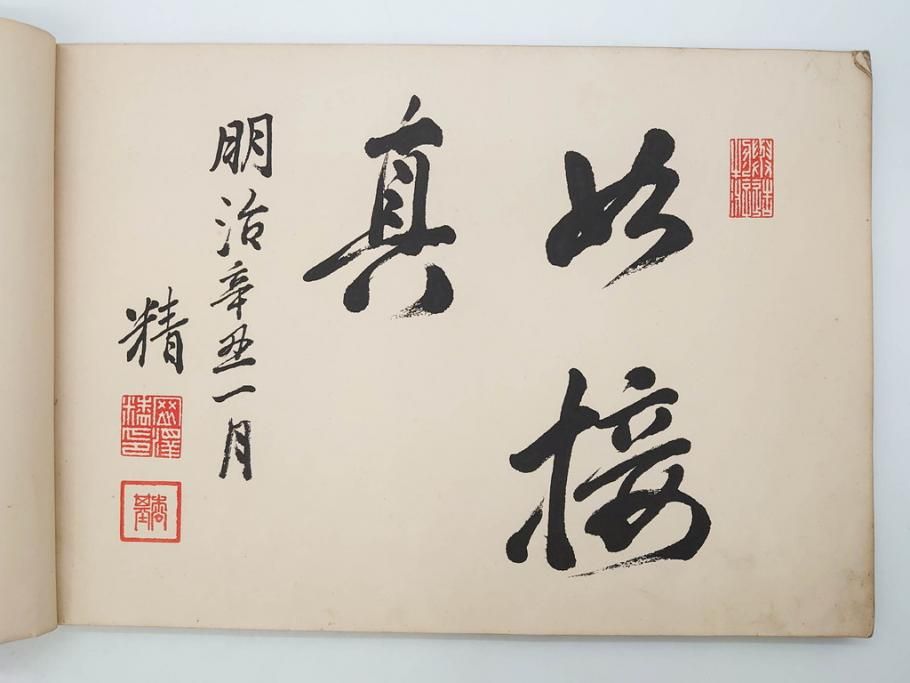 如接
真
明治辛丑一月
精